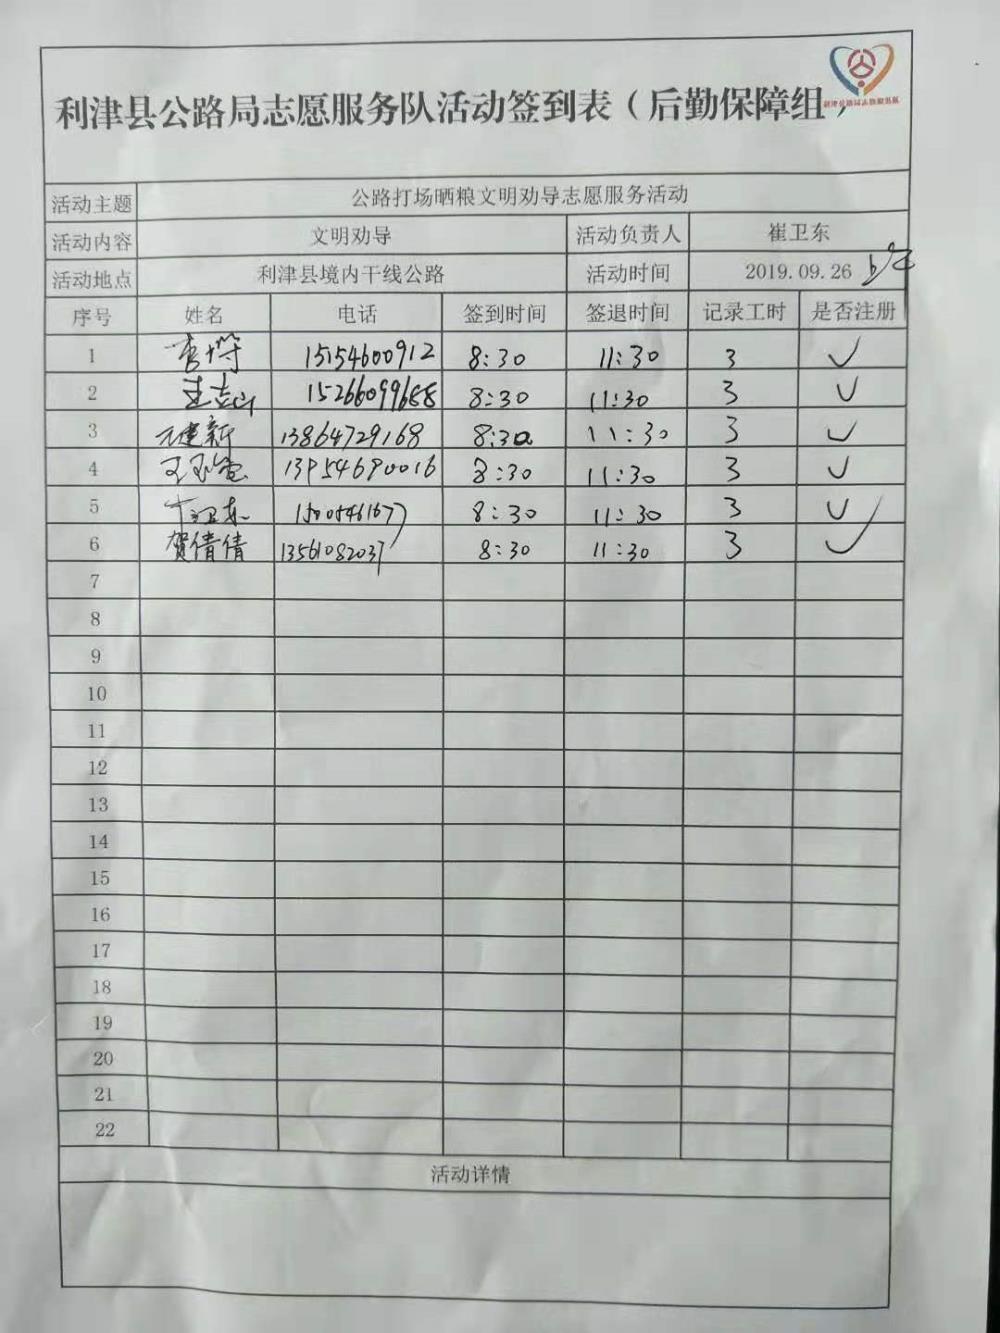 利津县公路局志愿服务队活动签到表（后勤保障组）
利津公路局志愿服务队
活动主题 公路打场晒粮文明劝导志愿服务活动
活动内容 文明劝导 活动负责人 崔卫东
活动地点 利津县境内干线公路 活动时间 2019.09.26
序号 姓名 电话 签到时间 签退时间 记录工时 是否注册
1 15154600912 8:30 11:30 3 ✓
2 15266099688 8:30 11:30 3 ✓
3 建新 13864729168 8:30 11:30 3 ✓
4 13954690016 8:30 11:30 3 ✓
5 8:30 11:30 3 ✓
6 贺倩倩 13561082037 8:30 11:30 3 ✓
7
8
9
10
11
12
13
14
15
16
17
18
19
20
21
22
活动详情